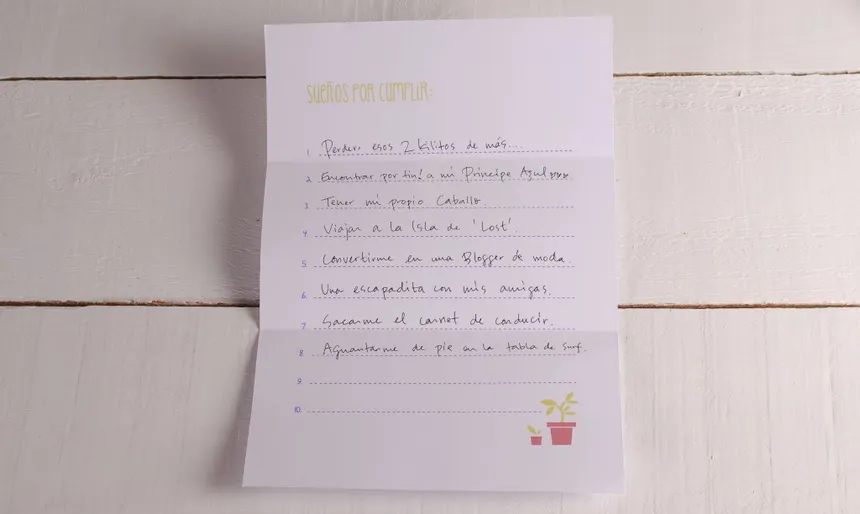 SUEÑOS POR CUMPLIR:
1. Perder, esos 2 kilitos de más...
2. Encontrar por fin! a mi Príncipe Azul
3. Tener mi propio Caballo
4. Viajar a la Isla de 'Lost'.
5. Convertirme en una Blogger de moda.
6. Una escapadita con mis amigas.
7. Sacarme el carnet de conducir.
8. Aguantarme de pie en la tabla de surf.
9.
10.